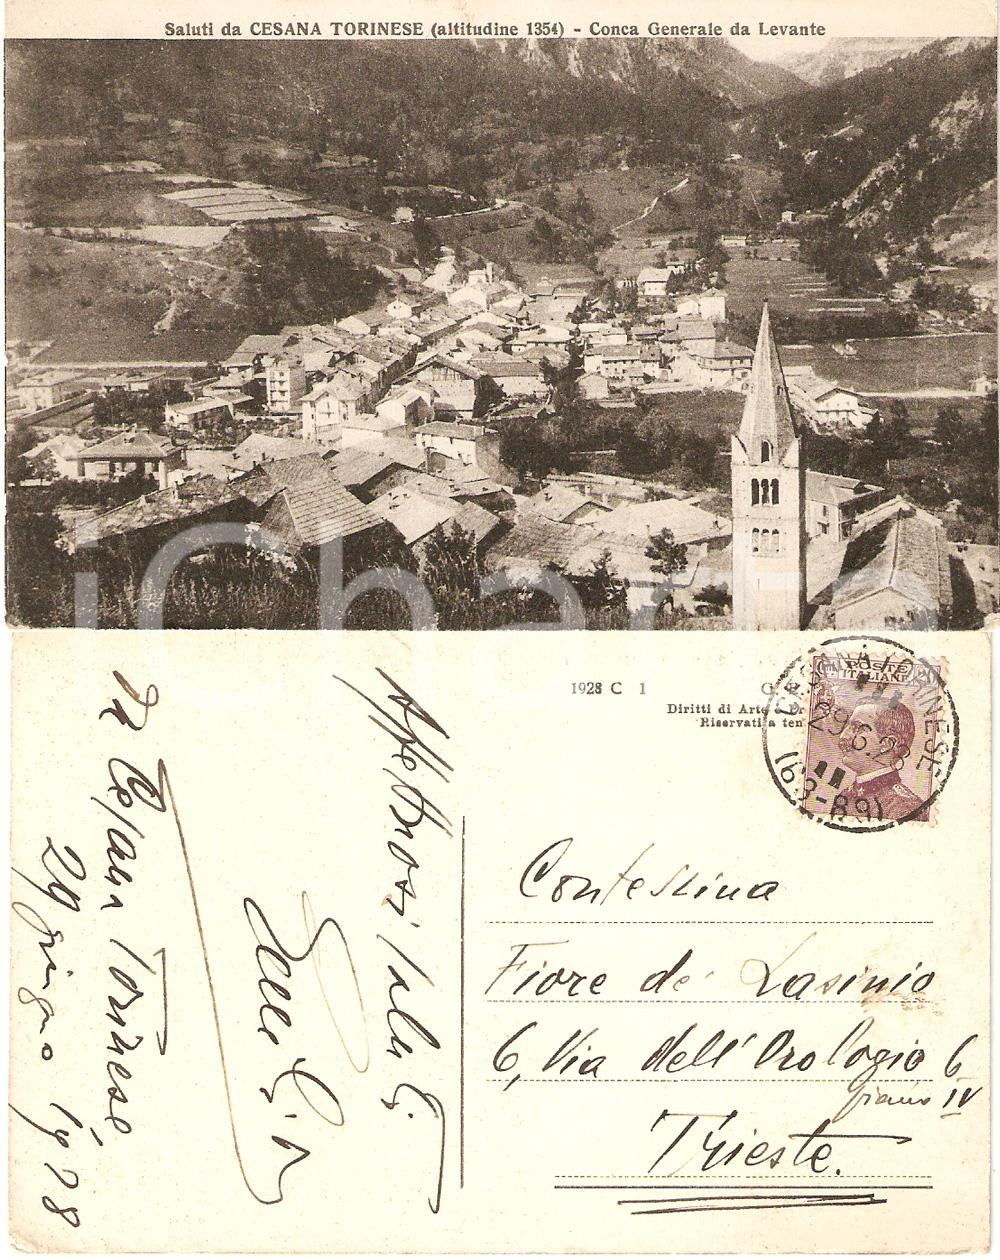 Saluti da CESANA TORINESE (altitudine 1354) - Conca Generale da Levante
1928 C 1
Diritti di Arte
Riservati a
POSTE
ITALIANE
29.6.28
(63-89)
Affettuosi saluti
Cesana Torinese
29 giugno 1928
Contessina
Fiore de' Lasinio
6, Via dell' Orologio 6
piano IV
Trieste.